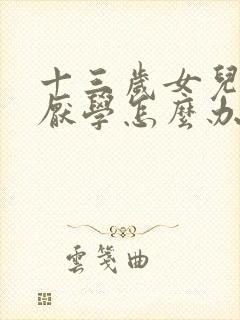 十三歲女兒
厭學怎麼办
雲箋曲